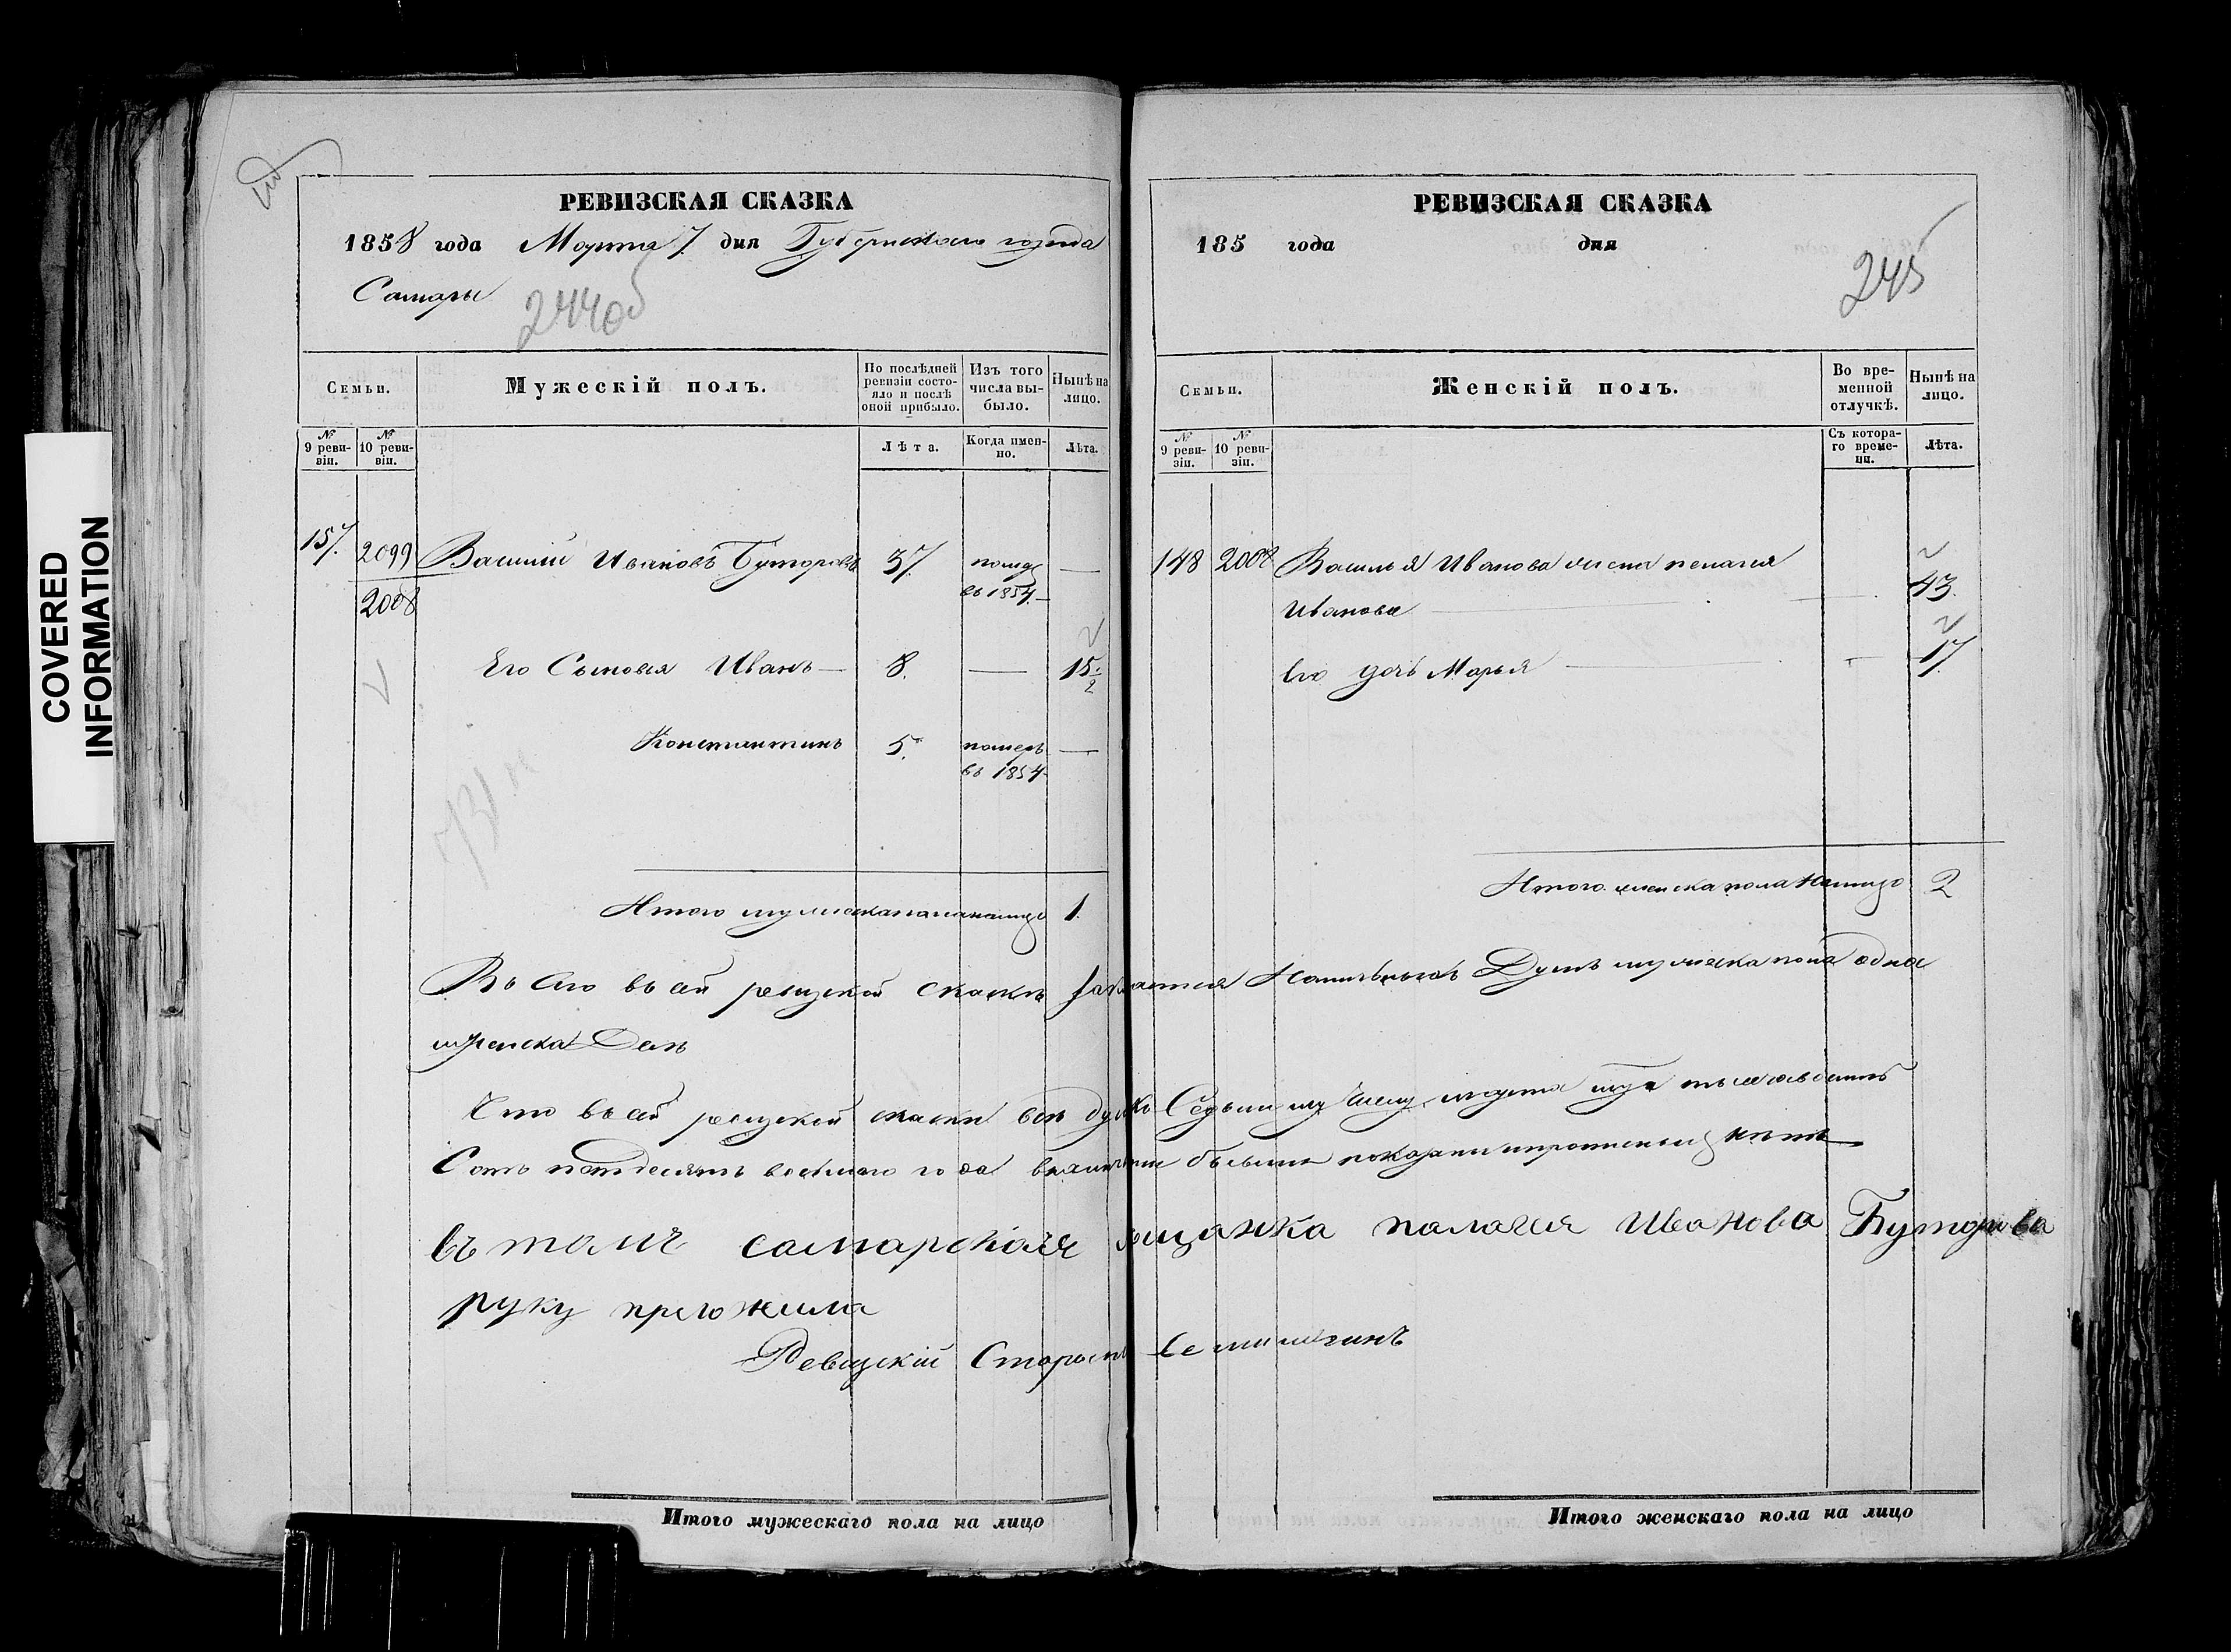 COVERED
INFORMATION
РЕВИЗСКАЯ СКАЗКА
1858 года Марта 7 дня Губернскаго города
Самары
244об
Семьи.
Мужескій полъ.
По послѣдней ревизіи состо-
яло и послѣ
оной прибыло.
Изъ того
числа вы-
было.
Нынѣ на
лицо.
№
9 реви-
зіи.
№
10 реви-
зіи.
Лѣта.
Когда имен-
но.
Лѣта.
157.
2099
2008
Василій Ивановъ Буторовъ
37.
въ 1854.
—
Его Сыновья Иванъ —
8.
—
15 1/2
Константинъ
5.
померъ
въ 1854
—
Итого мужеска пола налицо
1.
РЕВИЗСКАЯ СКАЗКА
185 года дня
245
Семьи.
Женскій полъ.
Во вре-
менной
отлучкѣ.
Нынѣ на
лицо.
№
9 реви-
зіи.
№
10 реви-
зіи.
Съ котора-
го време-
ни.
Лѣта.
148
2008
Василья Иванова жена пелагия
Иванова
43.
Его дочь Марья
17.
Итого женска пола налицо
2
Всего въ сей ревизкой сказке Душъ мужеска пола одна
женска Две
Что въ сей ревизкой скаски Седьмому Числу марта
Сотъ пятдесятъ восмого года показаны нетъ
въ томъ самарская мещанка палагея Иванова Буторова
руку преложила
Ревизкій Староста
Итого мужескаго пола на лицо
Итого женскаго пола на лицо